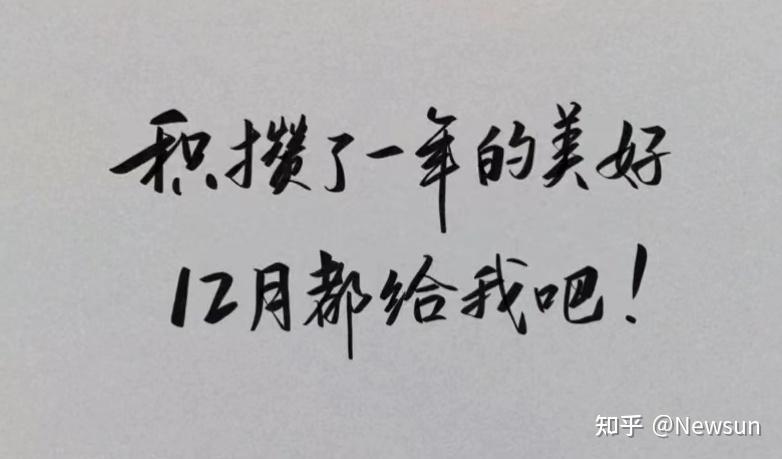 积攒了一年的美好
12月都给我吧！
知乎 @Newsun